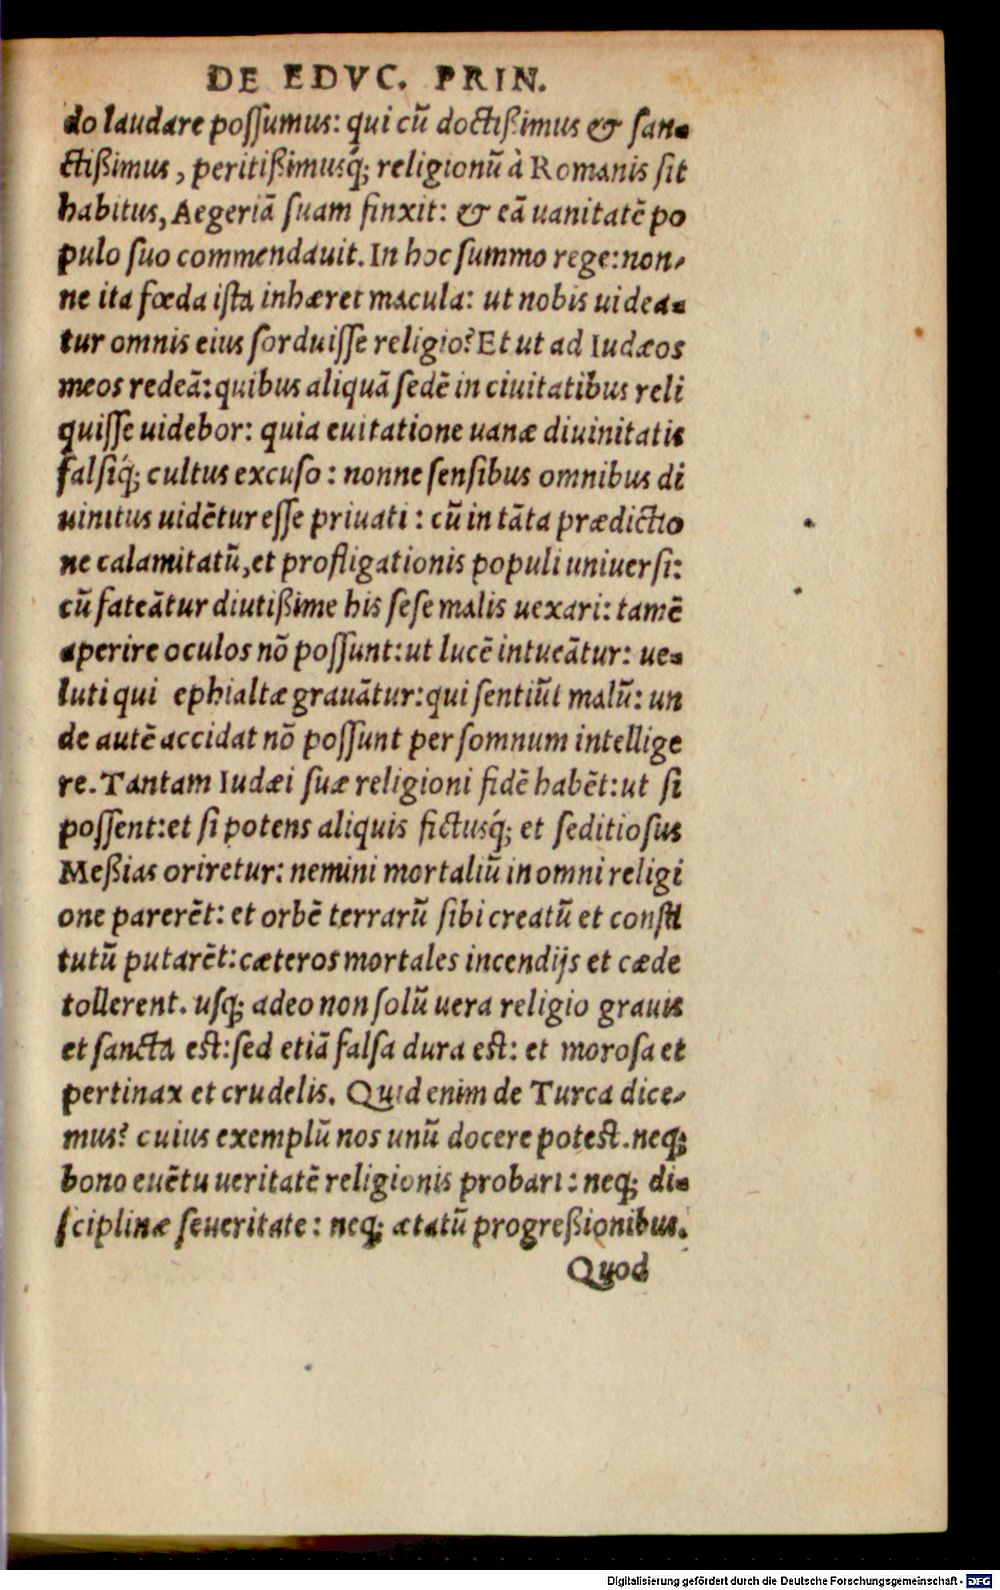 DE EDVC. PRIN.
do laudare poſſumus: qui cū doctißimus & ſan-
ctißimus, peritißimusq́; religionū à Romanis ſit
habitus, Aegeriā ſuam finxit: & eā uanitatē po
pulo ſuo commendauit. In hoc ſummo rege: non-
ne ita fœda iſta inhæret macula: ut nobis uidea-
tur omnis eius ſorduiſſe religio? Et ut ad Iudæos
meos redeā: quibus aliquā ſedē in ciuitatibus reli
quiſſe uidebor: quia euitatione uanæ diuinitatis
falſiq́; cultus excuſo: nonne ſenſibus omnibus di
uinitus uidētur eſſe priuati: cū in tāta prædictio
ne calamitatū, et profligationis populi uniuerſi:
cū fateātur diutißime his ſeſe malis uexari: tamē
aperire oculos nō poſſunt: ut lucē intueātur: ue-
luti qui ephialtæ grauātur: qui ſentiūt malū: un
de autē accidat nō poſſunt per ſomnum intellige
re. Tantam Iudæi ſuæ religioni fidē habēt: ut ſi
poſſent: et ſi potens aliquis fictusq́; et ſeditioſus
Meßias oriretur: nemini mortaliū in omni religi
one parerēt: et orbē terrarū ſibi creatū et conſti
tutū putarēt: cæteros mortales incendijs et cæde
tollerent. uſq; adeo non ſolū uera religio grauis
et ſancta eſt: ſed etiā falſa dura eſt: et moroſa et
pertinax et crudelis. Quid enim de Turca dice-
mus? cuius exemplū nos unū docere poteſt. neq;
bono euētu ueritatē religionis probari: neq; di-
ſciplinæ ſeueritate: neq; ætatū progreßionibus.
Quod
Digitalisierung gefördert durch die Deutsche Forschungsgemeinschaft - DFG